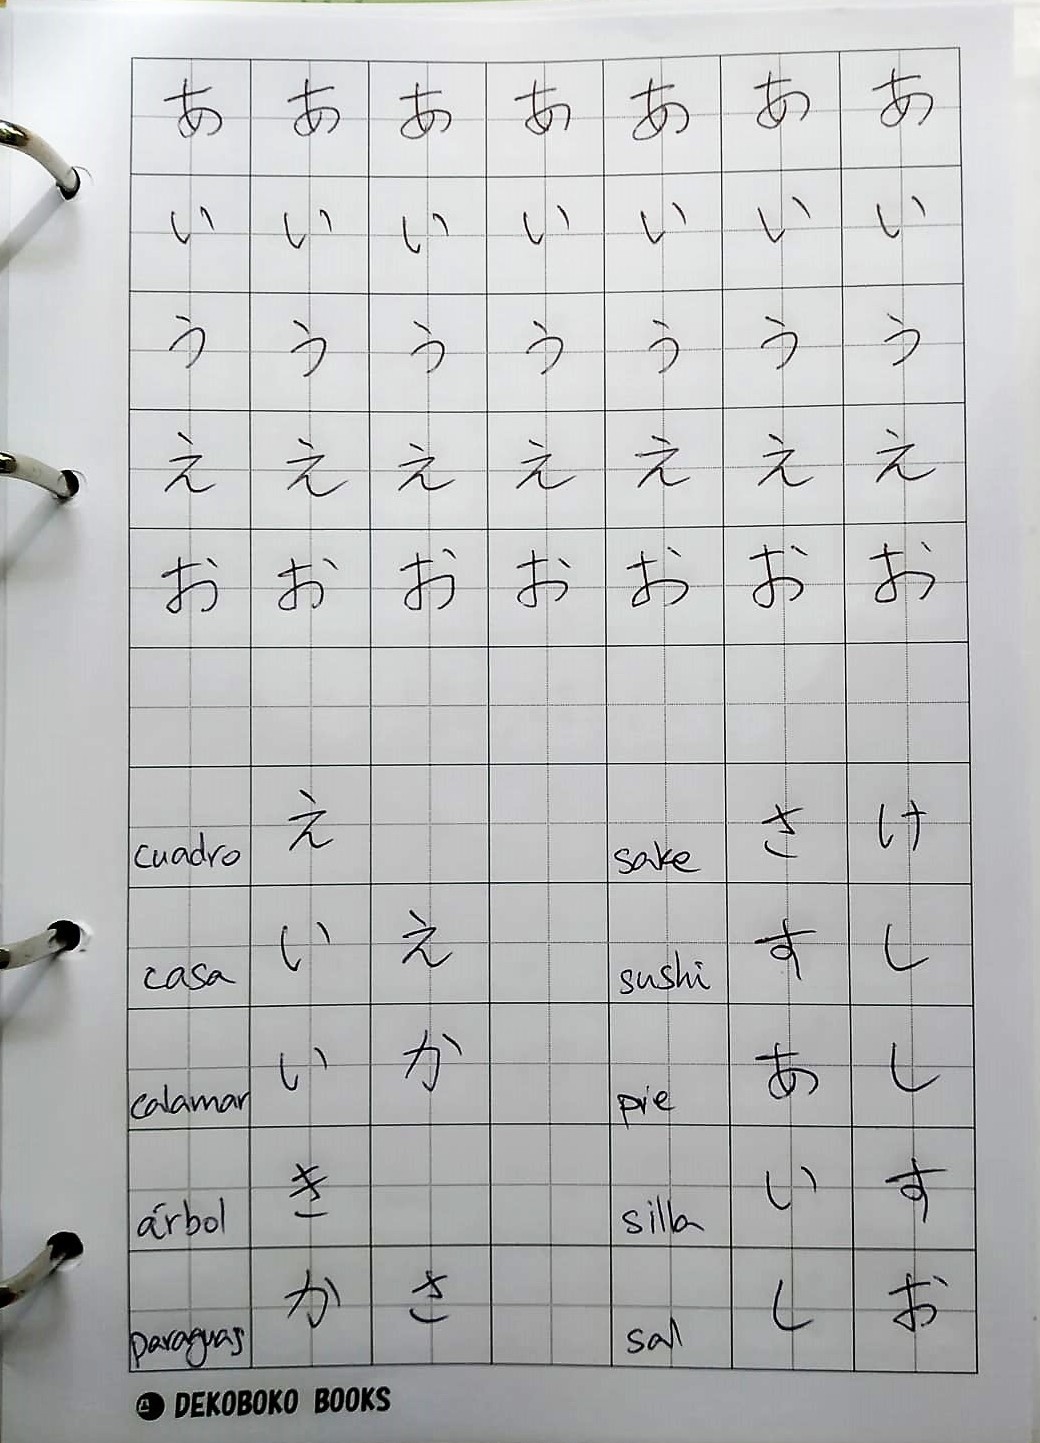 あ あ あ あ あ あ あ
い い い い い い い
う う う う う う う
え え え え え え え
お お お お お お お
cuadro え sake さ け
casa い え sushi す し
calamar い か pie あ し
árbol き silla い す
paraguas か さ sal し お
DEKOBOKO BOOKS